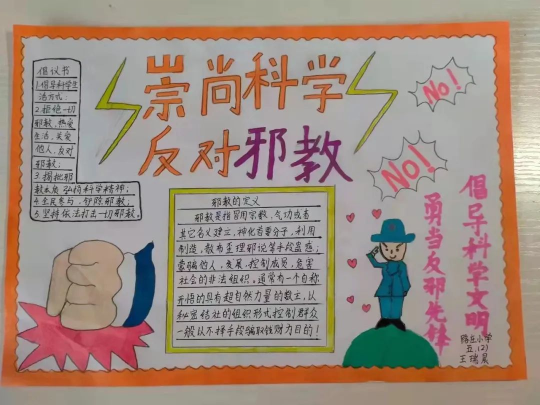 崇尚科学
反对邪教
倡议书
1.倡导科学生
活方式;
2.拒绝一切
邪教,热爱
生活,关爱
他人,反对
邪教;
3.揭批邪
教本质,弘扬科学精神,
4.全民参与,铲除邪教;
5.坚持依法打击一切邪教。
No!
No!
邪教的定义
邪教是指冒用宗教,气功或者
其它名义建立,神化首要分子,利用
制造、散布歪理邪说等手段蛊惑、
蒙骗他人,发展、控制成员,危害
社会的非法组织。通常为一个自称
开悟的具有超自然力量的教主,以
秘密结社的组织形式控制群众
一般以不择手段骗取钱财为目的!
倡导科学文明
勇当反邪先锋
小学
五.(2)
王瑞